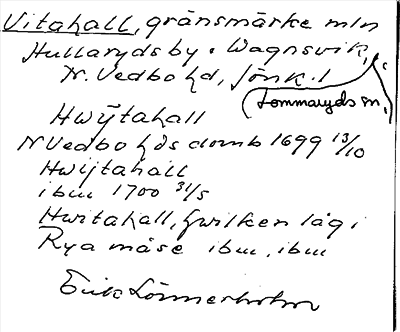 Vitahall, gränsmärke mln
Hullaryds by o. Wagnsvik,
N. Vedbo hd, Jönk. l
(Lommaryds sn,
Hwÿtahall
N Vedbo hds domb 1699 13/10
Hwijtahall
ibm 1700 31/5
Hwitahall, hwilken låg i
Rya måse ibm, ibm
Erik Lönnerholm